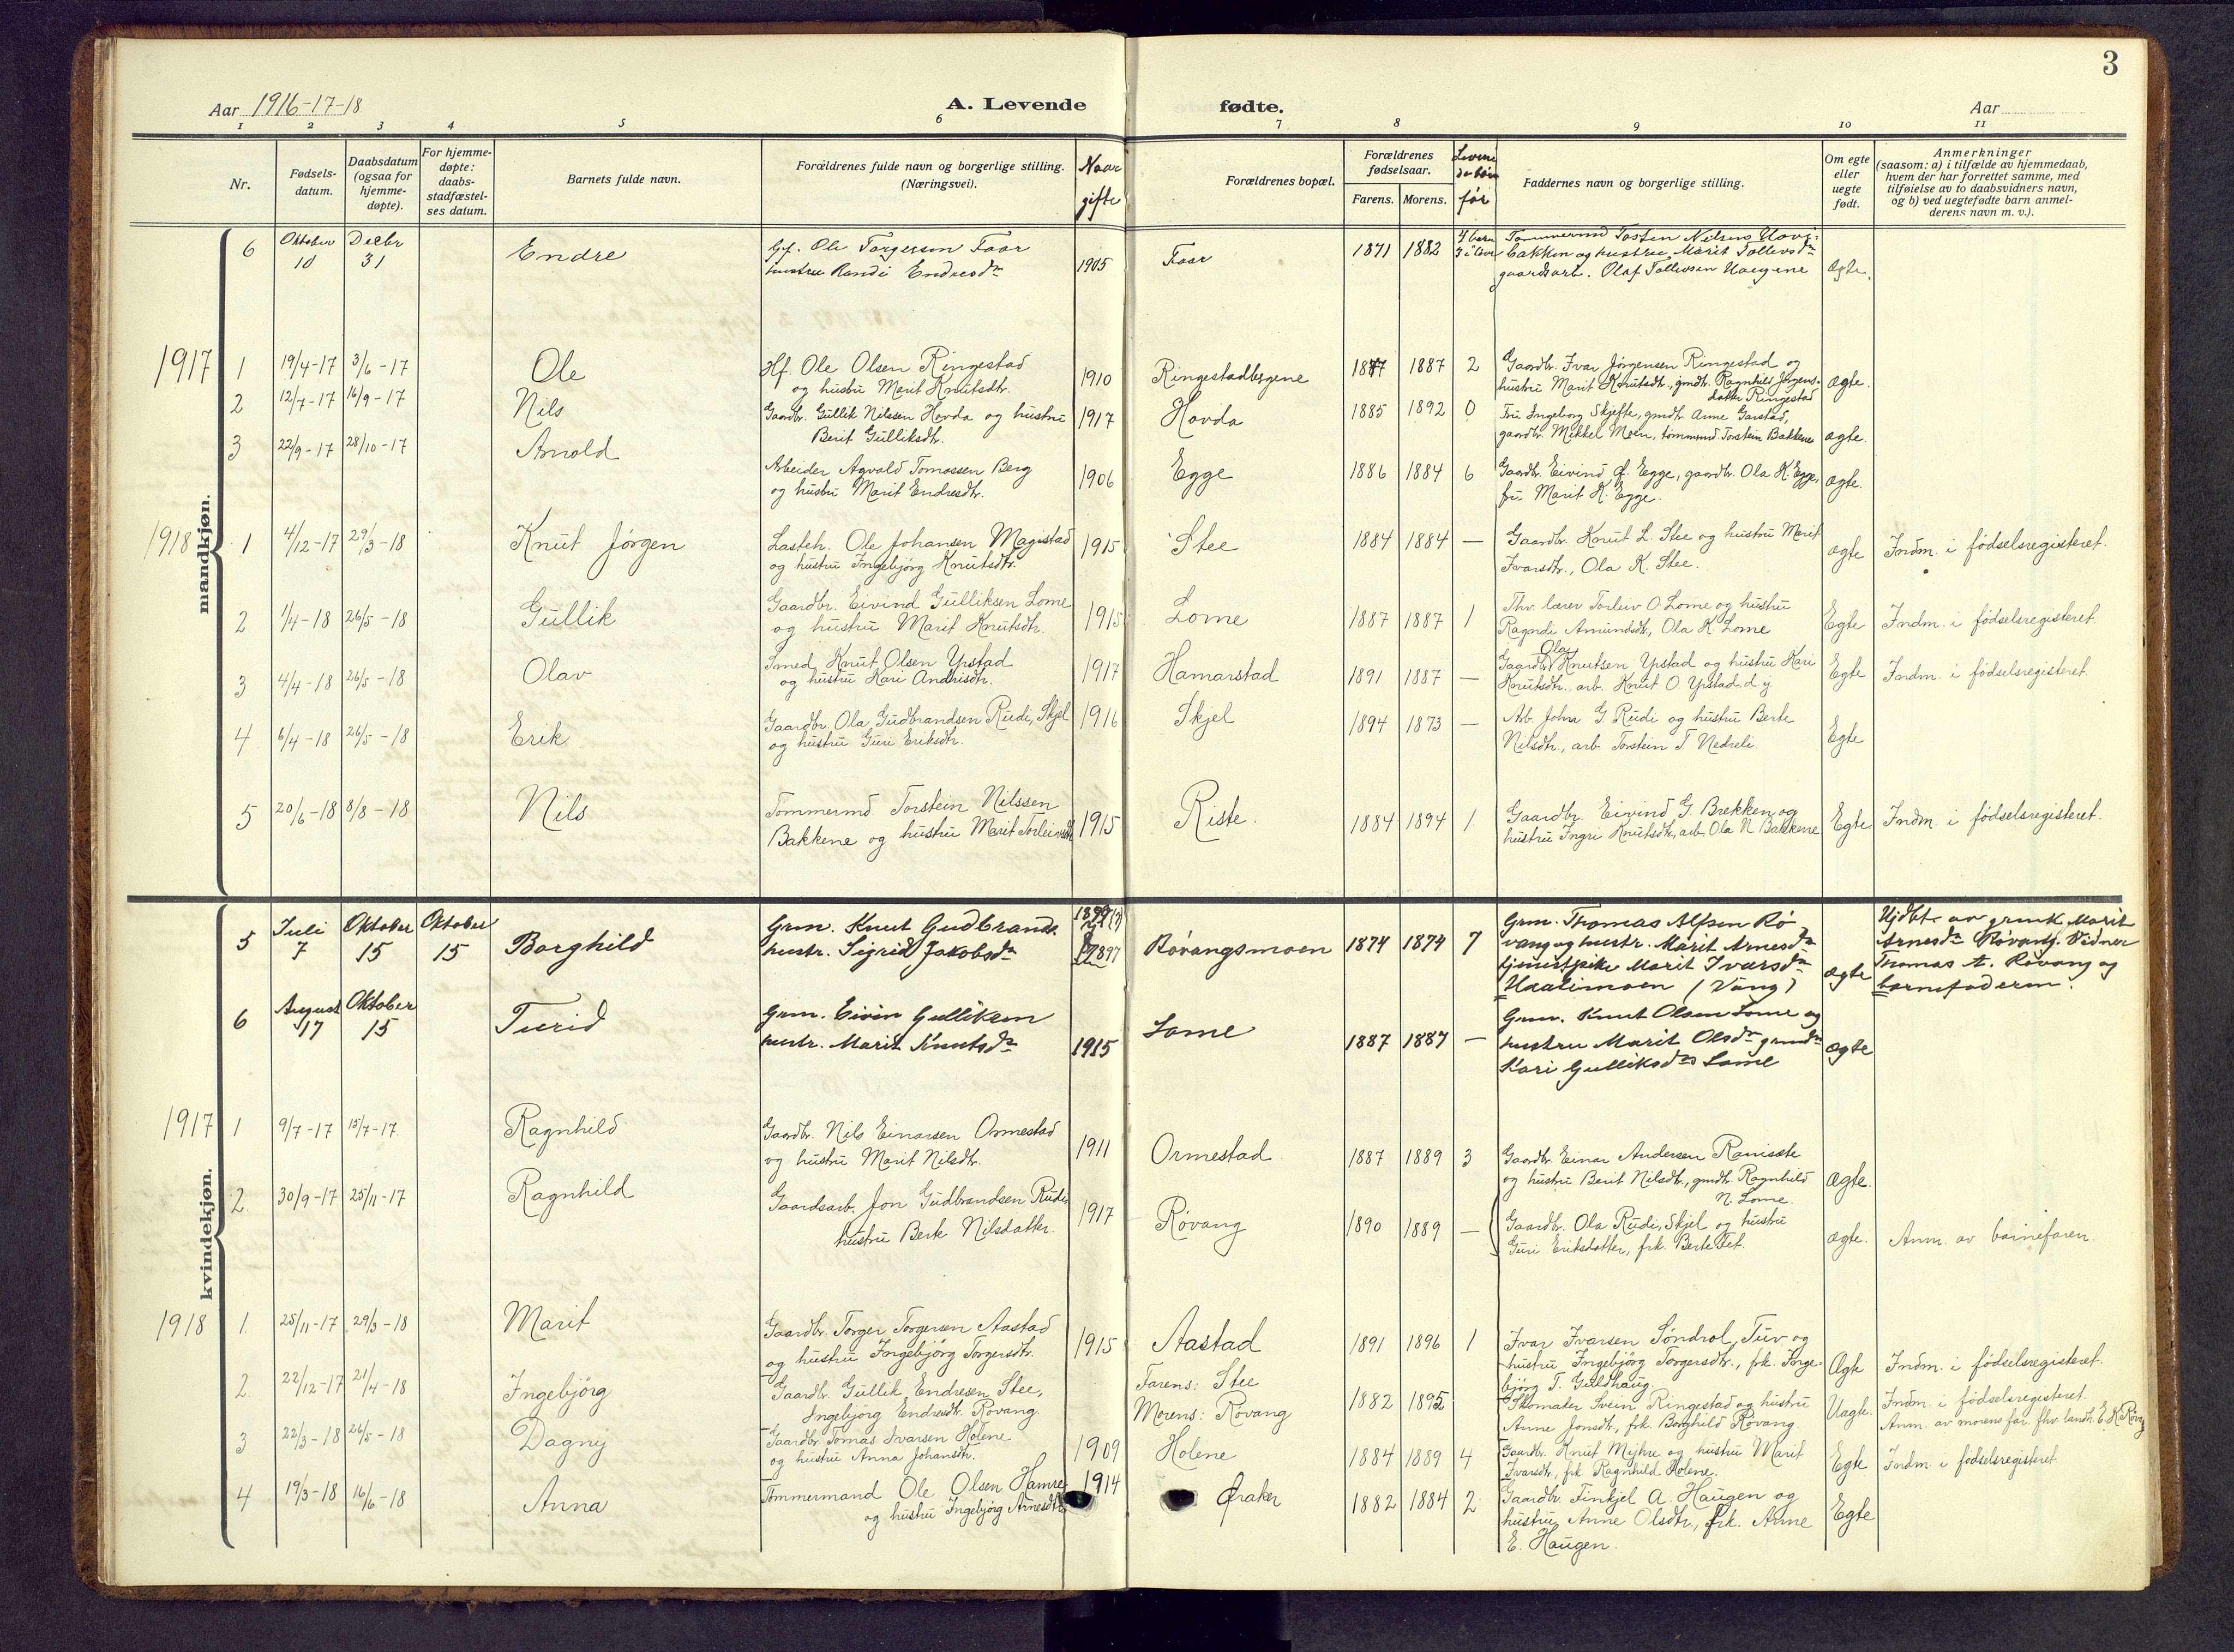 3
Aar 1916-17-18
A. Levende
fødte.
Aar
1 2 3 4 5 6 7 8 9 10 11
Nr.
Fødsels-
datum.
Daabsdatum
(ogsaa for
hjemme-
døpte).
For hjemme-
døpte:
daabs-
stadfæstel-
ses datum.
Barnets fulde navn.
Forældrenes fulde navn og borgerlige stilling.
(Næringsvei).
Naar
gifte
Forældrenes bopæl.
Forældrenes
fødselsaar.
Farens. Morens.
før
Faddernes navn og borgerlige stilling.
Om egte
eller
uegte
født.
Anmerkninger
(saasom: a) i tilfælde av hjemmedaab,
hvem der har forrettet samme, med
tilføielse av to daabsvidners navn,
og b) ved uegtefødte barn anmel-
derens navn m. v.).
mandkjøn.
6 Oktober 10 Decbr 31 Endre
Ole Torgersen Faar
hustru Randi Endresdr
1905 Faar 1871 1882
Tømmermd Tosten Nilsens
bakken og hustru Marit Tollevsdr
gaardsarb. Olaf Tollevsen
ægte.
1917
1 19/4-17 3/6-17 Ole
Hf. Ole Olsen Ringestad
og hustru Marit Knutsdtr.
1910 Ringestadbergene 1877 1887 2
Gaardbr. Ivar Jørgensen Ringestad og
hustru Marit Knutsdtr., gmdtr. Ragnhild Jørgens-
datter Ringestad
ægte.
2 12/7-17 16/9-17 Nils
Gaardbr. Gullik Nilssen Hovda og hustru
Berit Gulliksdtr.
1917 Hovda 1885 1892 0
Fru Ingeborg Skjefte, gmdtr. Anne Garstad,
gaardbr. Mikkel Moen, tømmermd. Torstein Bakkene
ægte.
3 22/9-17 28/10-17 Arnold
Arbeider Agvald Tomassen Berg
og hustru Marit Endresdtr.
1906 Egge 1886 1884 6
Gaardbr. Eivind Egge, gaardbr. Ola K. Egge,
fru Marit K. Egge.
ægte.
1918
1 4/12-17 29/3-18 Knut Jørgen
Lasteh. Ole Johansen Magistad
og hustru Ingebjørg Knutsdtr.
1915 Stee 1884 1884 —
Gaardbr. Knut L. Stee og hustru Marit
Ivarsdtr., Ola K. Stee.
ægte Indm. i fødselsregisteret.
2 1/4-18 26/5-18 Gullik
Gaardbr. Eivind Gulliksen Lome
og hustru Marit Knutsdtr.
1915 Lome 1887 1887 1
Fhv. lærer Torleiv O Lome og hustru
Ragndi Amundsdtr, Ola K. Lome
Egte Indm. i fødselsregisteret.
3 4/4-18 26/5-18 Olav
Smed Knut Olsen Ypstad
og hustru Kari Andrisdtr.
1917 Hamarstad 1891 1887 —
Ola
Gaardbr. Knutsen Ypstad og hustru Kari
Knutsdtr., arb. Knut O. Ypstad d. y
Egte Indm. i fødselsregisteret.
4 6/4-18 26/5-18 Erik
Gaardbr. Ola Gudbrandsen Rudi, Skjel
og hustru Guri Eriksdtr.
1916 Skjel 1894 1873 —
Arb. John G. Rudi og hustru Berte
Nilsdtr., arb. Torstein T. Nedreli.
Egte
5 20/6-18 8/8-18 Nils
Tømmermd. Torstein Nilssen
Bakkene og hustru Marit Torleivsdtr
1915 Riste. 1884 1894 1
Gaardbr. Eivind G. Brekken og
hustru Ingri Knutsdtr., arb. Ola N. Bakkene
Egte Indm. i fødselsregisteret.
kvindekjøn.
5 Juli 7 Oktober 15 Oktober 15 Borghild
Grm. Knut Gudbrands.
hustr. Sigrid Jakobsdr
1897 Røvangsmoen 1874 1874 7
Grm. Thomas Alfsen Rø
vang og hustr. Marit Arnesdr
tjenestpike Marit Ivarsdr
Haalimoen (Vang)
ægte
Hjdbt. av grmk. Marit
Arnesdr Røvang. Vidner
Thomas A. Røvang og
barnefaderen.
6 August 17 Oktober 15 Turid
Grm. Eivin Gulliksen
hustr. Marit Knutsdr
1915 Lome 1887 1887 —
Grm. Knut Olsen Lome og
hustru Marit Olsdr grmdr
Kari Gulliksdr Lome
ægte
1917
1 9/7-17 15/7-17 Ragnhild
Gaardbr. Nils Einarsen Ormestad
og hustru Marit Nilsdtr.
1911 Ormestad 1887 1889 3
Gaardbr. Einar Andersen Ranisste
og hustru Berit Nilsdtr., gmdtr. Ragnhild
N. Lome.
ægte.
2 30/9-17 25/11-17 Ragnhild
Gaardsarb. Jon Gudbrandsen Rudi
hustru Berte Nilsdatter.
1917 Røvang 1890 1889 —
Gaardbr. Ola Rudi, Skjel og hustru
Guri Eriksdatter, frk. Berte Fet.
ægte. Anm. av barnefaren.
1918
1. 25/11-17 29/3-18 Marit
Gaardbr. Torger Torgersen Aastad
og hustru Ingebjørg Torgersdtr.
1915 Aastad 1891 1896 1
Ivar Ivarsen Søndrol, Tuv og
hustru Ingebjørg Torgersdtr., frk. Inge-
bjørg T. Guldhaug.
Ægte Indm. i fødselsregisteret.
2 22/12-17 21/4-18 Ingebjørg
Gaardbr. Gullik Endresen Stee,
Ingebjørg Endresdtr. Røvang.
Farens: Stee
Morens: Røvang
1882 1895
Skomaker Svein Ringestad og hustru
Anne Jonsdtr., frk. Borghild Røvang.
Uægte. Indm. i fødselsregisteret.
Anm. av morens far. fhv. landh. E. K. Røvang
3 22/3-18 26/5-18 Dagny
Gaardbr. Tomas Ivarsen Holene
og hustru Anna Johansdtr.
1909 Holene 1884 1889 4
Gaardbr. Knut Myhre og hustru Marit
Ivarsdtr., frk. Ragnhild Holene.
Egte Indm. i fødselsregisteret.
4 19/3-18 16/6-18 Anna
Tømmermand Ole Olsen Hamre
og hustru Ingebjørg Arnesdtr
1914 Øraker 1882 1884 2
Gaardbr. Finkjel A. Haugen og
hustru Anne Olsdtr., frk. Anne
E. Haugen.
Egte